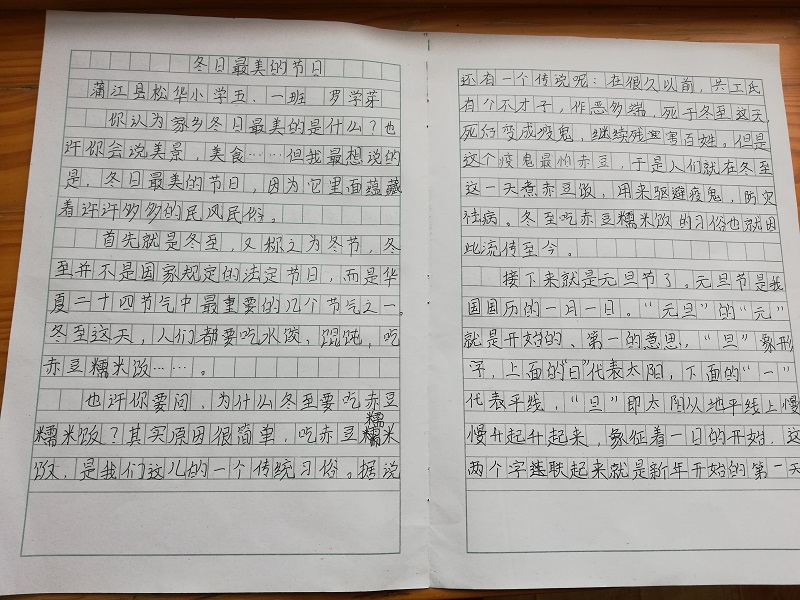 冬日最美的节日
蒲江县松华小学五.一班 罗学芽
你认为家乡冬日最美的是什么？也
许你会说美景，美食……但我最想说的
是，冬日最美的节日，因为它里面蕴藏
着许许多多的民风民俗。
首先就是冬至，又称之为冬节，冬
至并不是国家规定的法定节日，而是华
夏二十四节气中最重要的几个节气之一。
冬至这天，人们都要吃水饺，馄饨，吃
赤豆糯米饭……。
也许你要问，为什么冬至要吃赤豆
糯米饭？其实原因很简单，吃赤豆糯米
饭，是我们这儿的一个传统习俗。据说
还有一个传说呢：在很久以前，共工氏
有个不才子，作恶多端，死于冬至这天，
死后变成疫鬼，继续残害百姓。但是
这个疫鬼最怕赤豆，于是人们就在冬至
这一天煮赤豆饭，用来驱避疫鬼，防灾
祛病。冬至吃赤豆糯米饭的习俗也就因
此流传至今。
接下来就是元旦节了。元旦节是我
国国历的一日一日。“元旦”的“元”
就是开始的、第一的意思，“旦”象形
字，上面的“日”代表太阳，下面的“一”
代表平线，“旦”即太阳从地平线上慢
慢升起升起来，象征着一日的开始，这
两个字连联起来就是新年开始的第一天